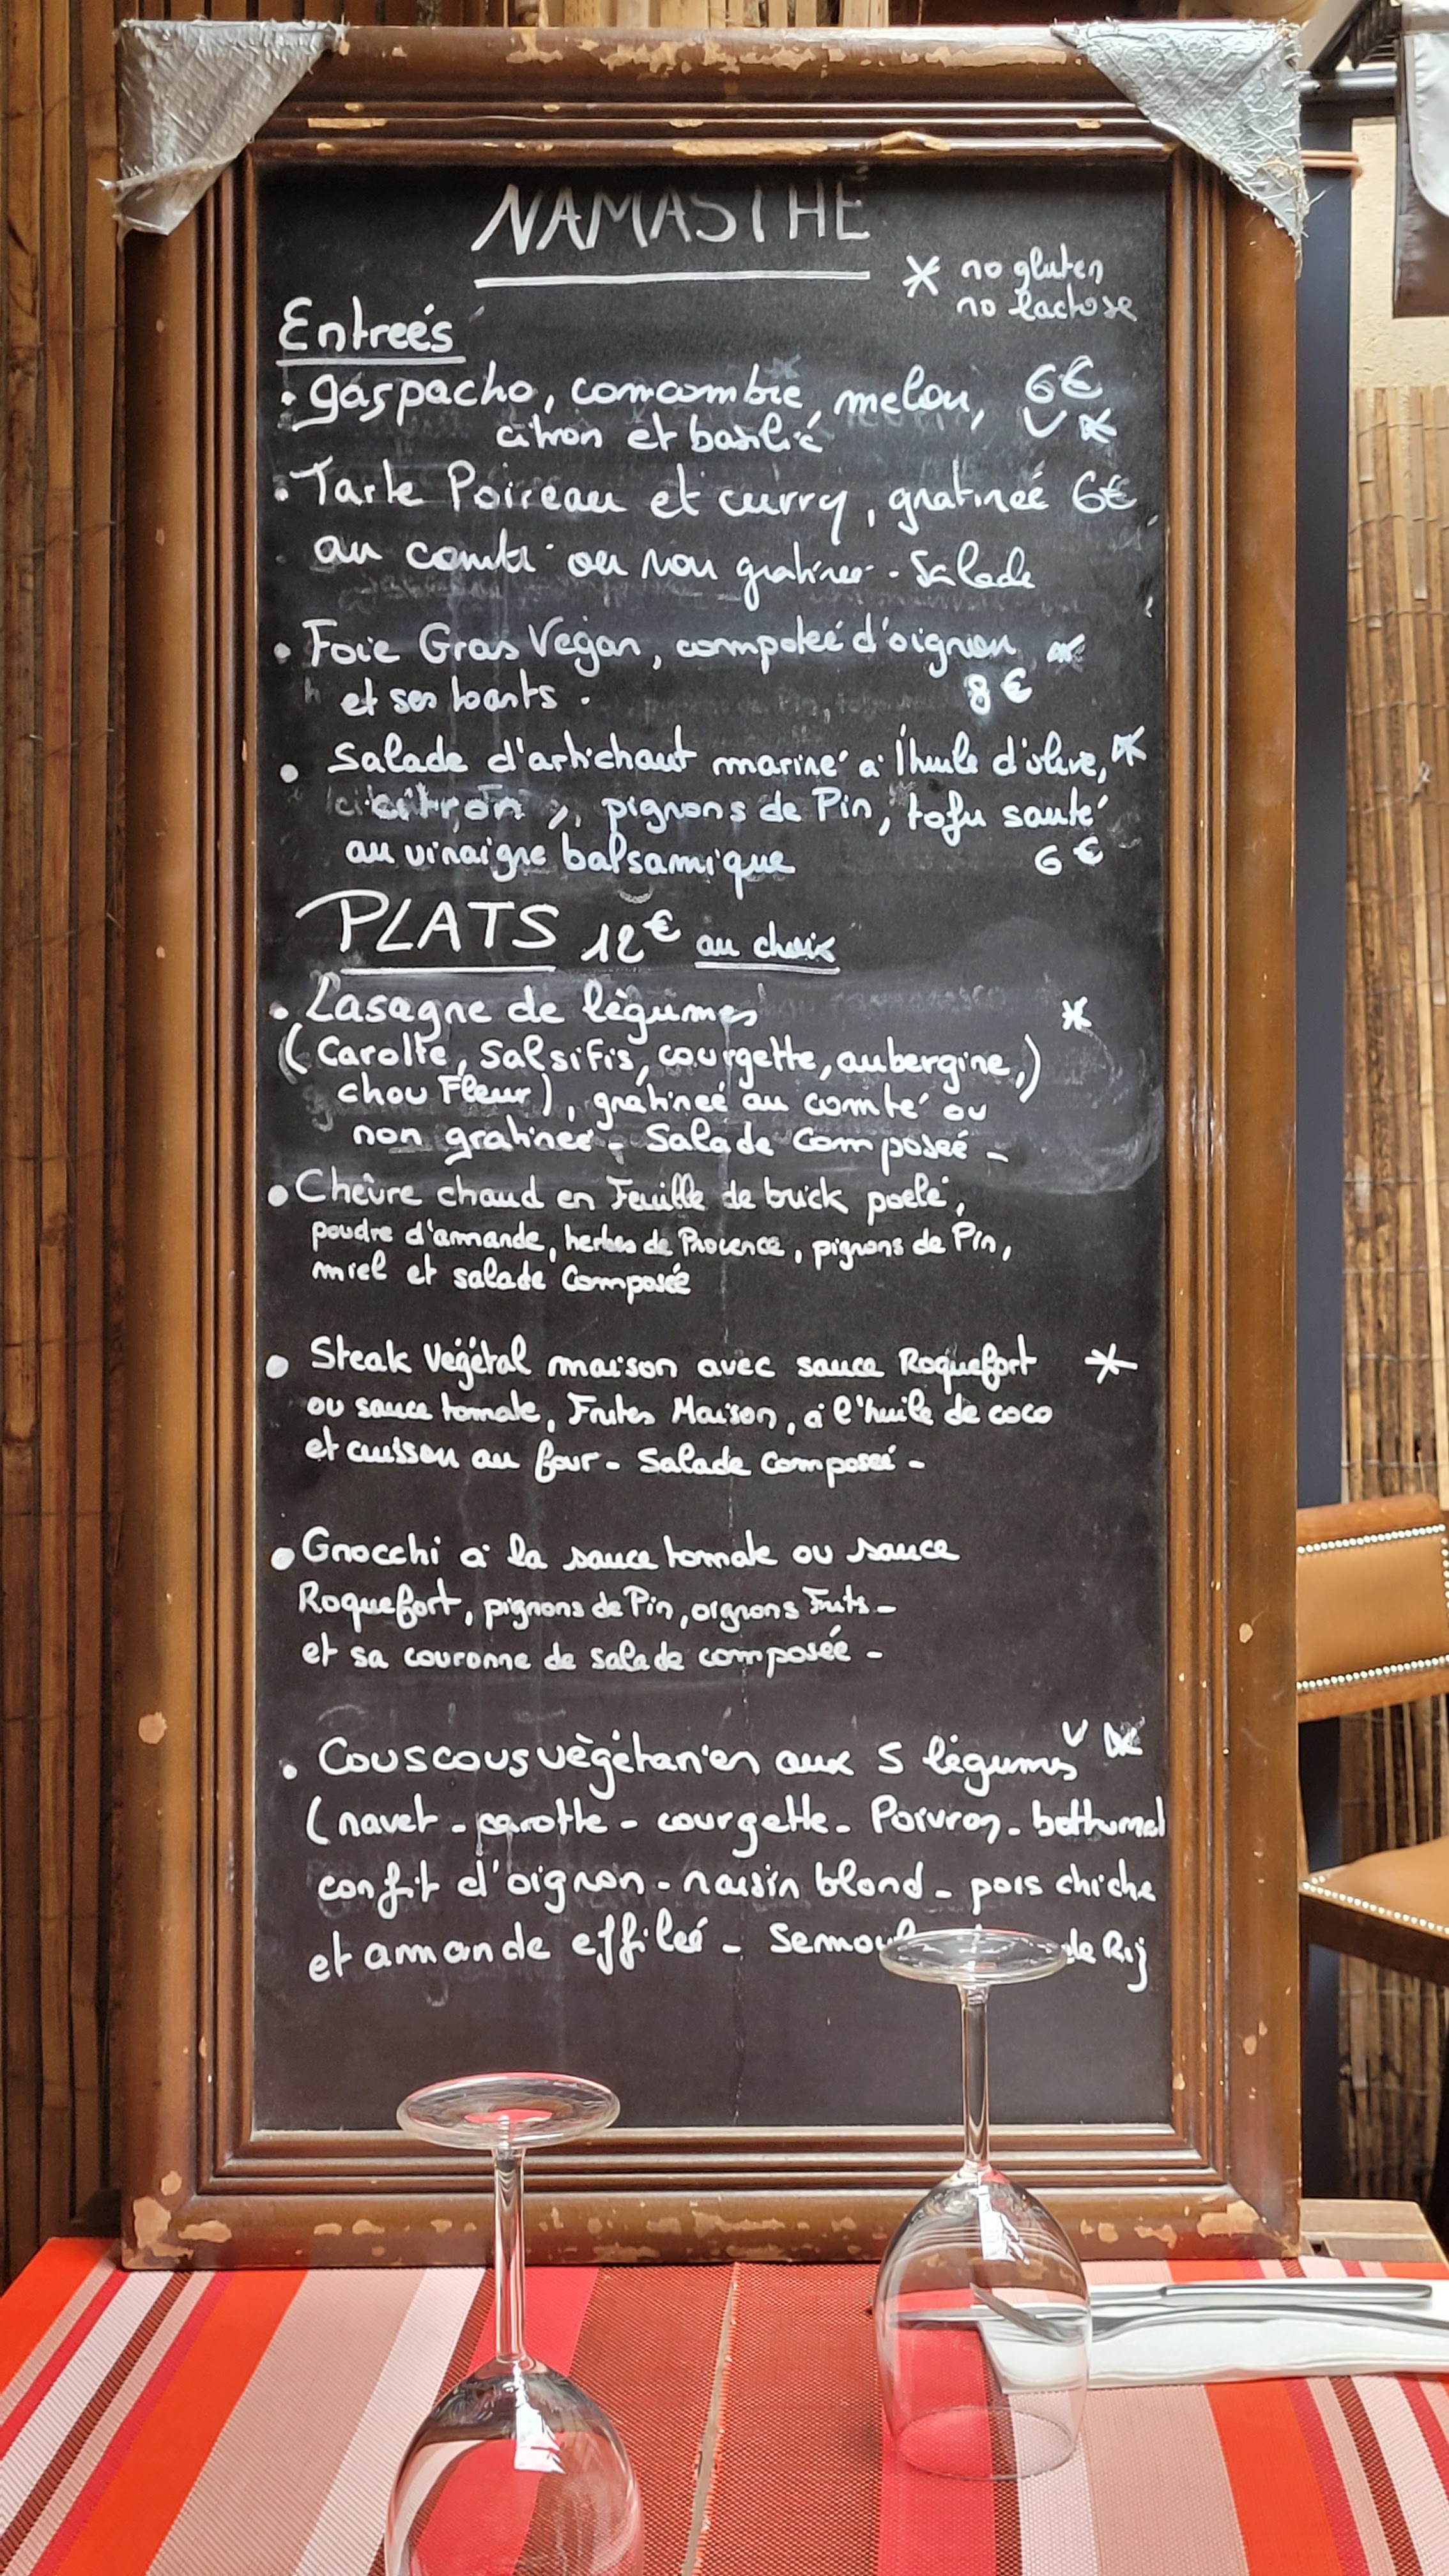 NAMASTHE
* no gluten
no lactose
Entreés
• gaspacho, concombre, melon, 6€
citron et basilic V *
• Tarte Poireau et curry, gratineé 6€
au comté ou non gratinée - Salade
• Foie Gras Vegan, compoteé d'oignon *
et ses toasts. 8€
• Salade d'artichaut mariné à l'huile d'olive, *
citron, pignons de Pin, tofu sauté
au vinaigre balsamique 6€
PLATS 12€ au choix
• Lasagne de lègumes *
(Carotte, Salsifis, courgette, aubergine,)
chou Fleur), gratineé au comté ou
non gratineé - Salade Composeé -
• Chèvre chaud en Feuille de brick poelé,
poudre d'amande, herbes de Provence, pignons de Pin,
miel et salade Composée
• Steak Végétal maison avec sauce Roquefort *
ou sauce tomate, Frites Maison, à l'huile de coco
et cuisson au four - Salade Composeé -
• Gnocchi à la sauce tomate ou sauce
Roquefort, pignons de Pin, oignons Frits -
et sa couronne de salade composée -
• Couscous vègétarien aux 5 légumes V *
(navet - carotte - courgette - Poivron -
confit d'oignon - raisin blond - pois chiche
et amande effileé - de Riz